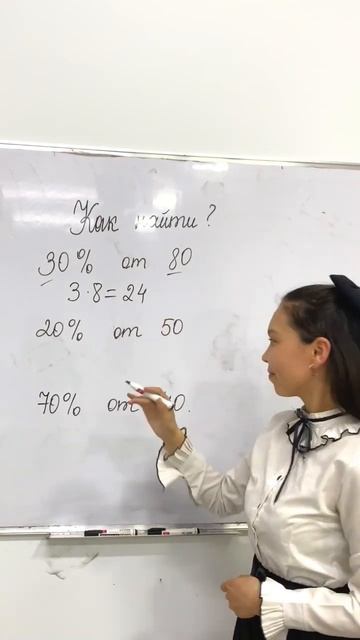 Как найти?
30% от 80
3·8=24
20% от 50
70% от